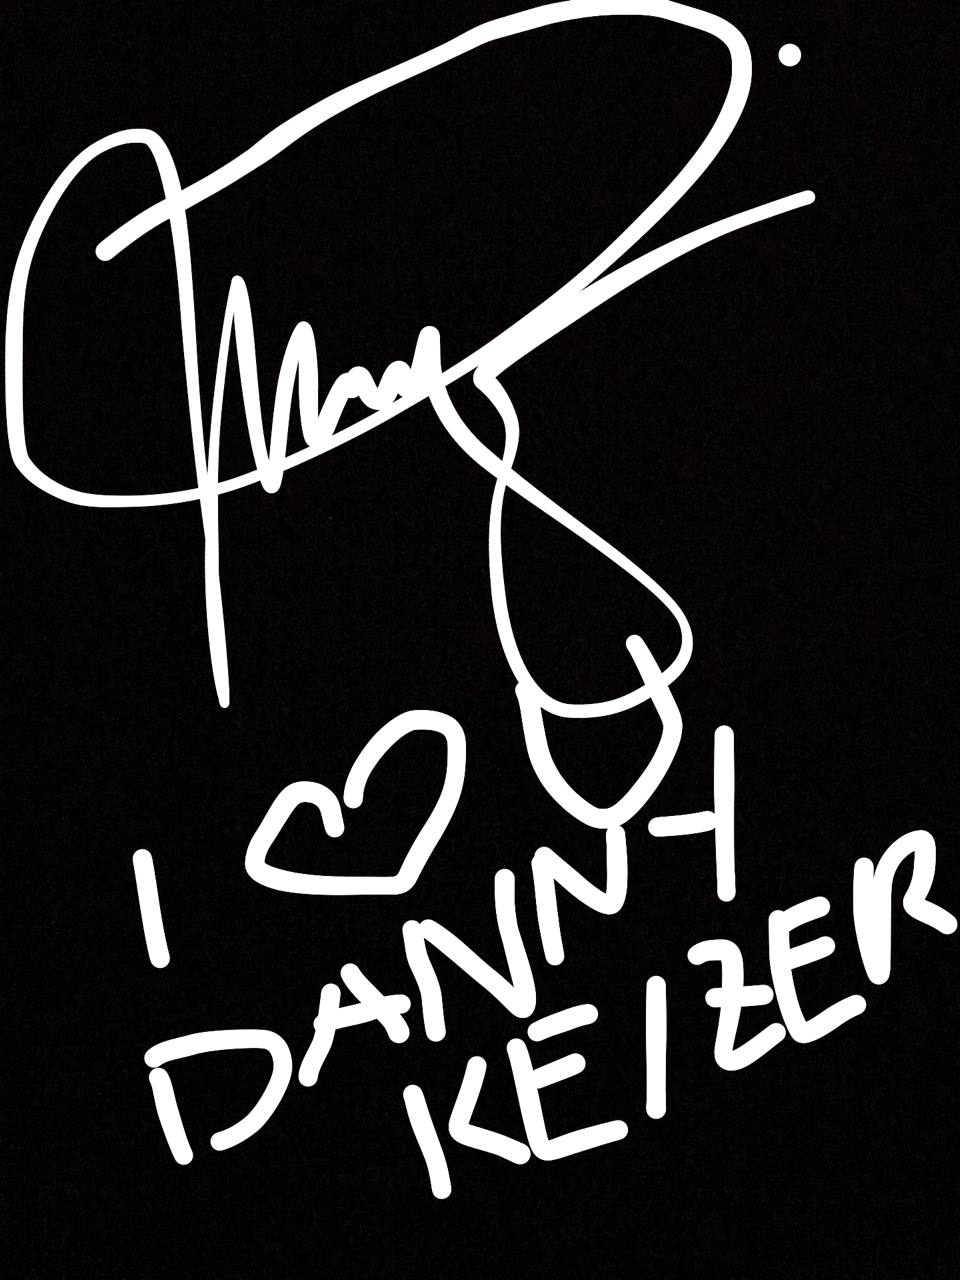 I ♡
DANNY
KEIZER